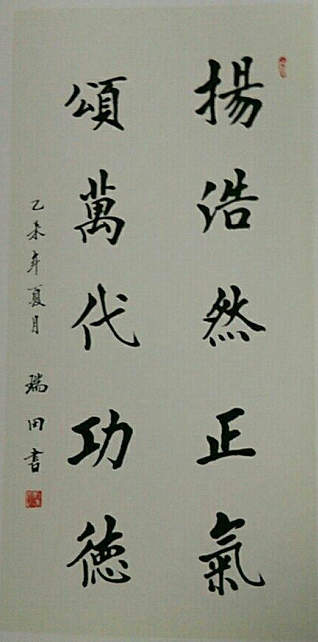 揚浩然正氣
頌萬代功德
乙未年夏月 瑞田書